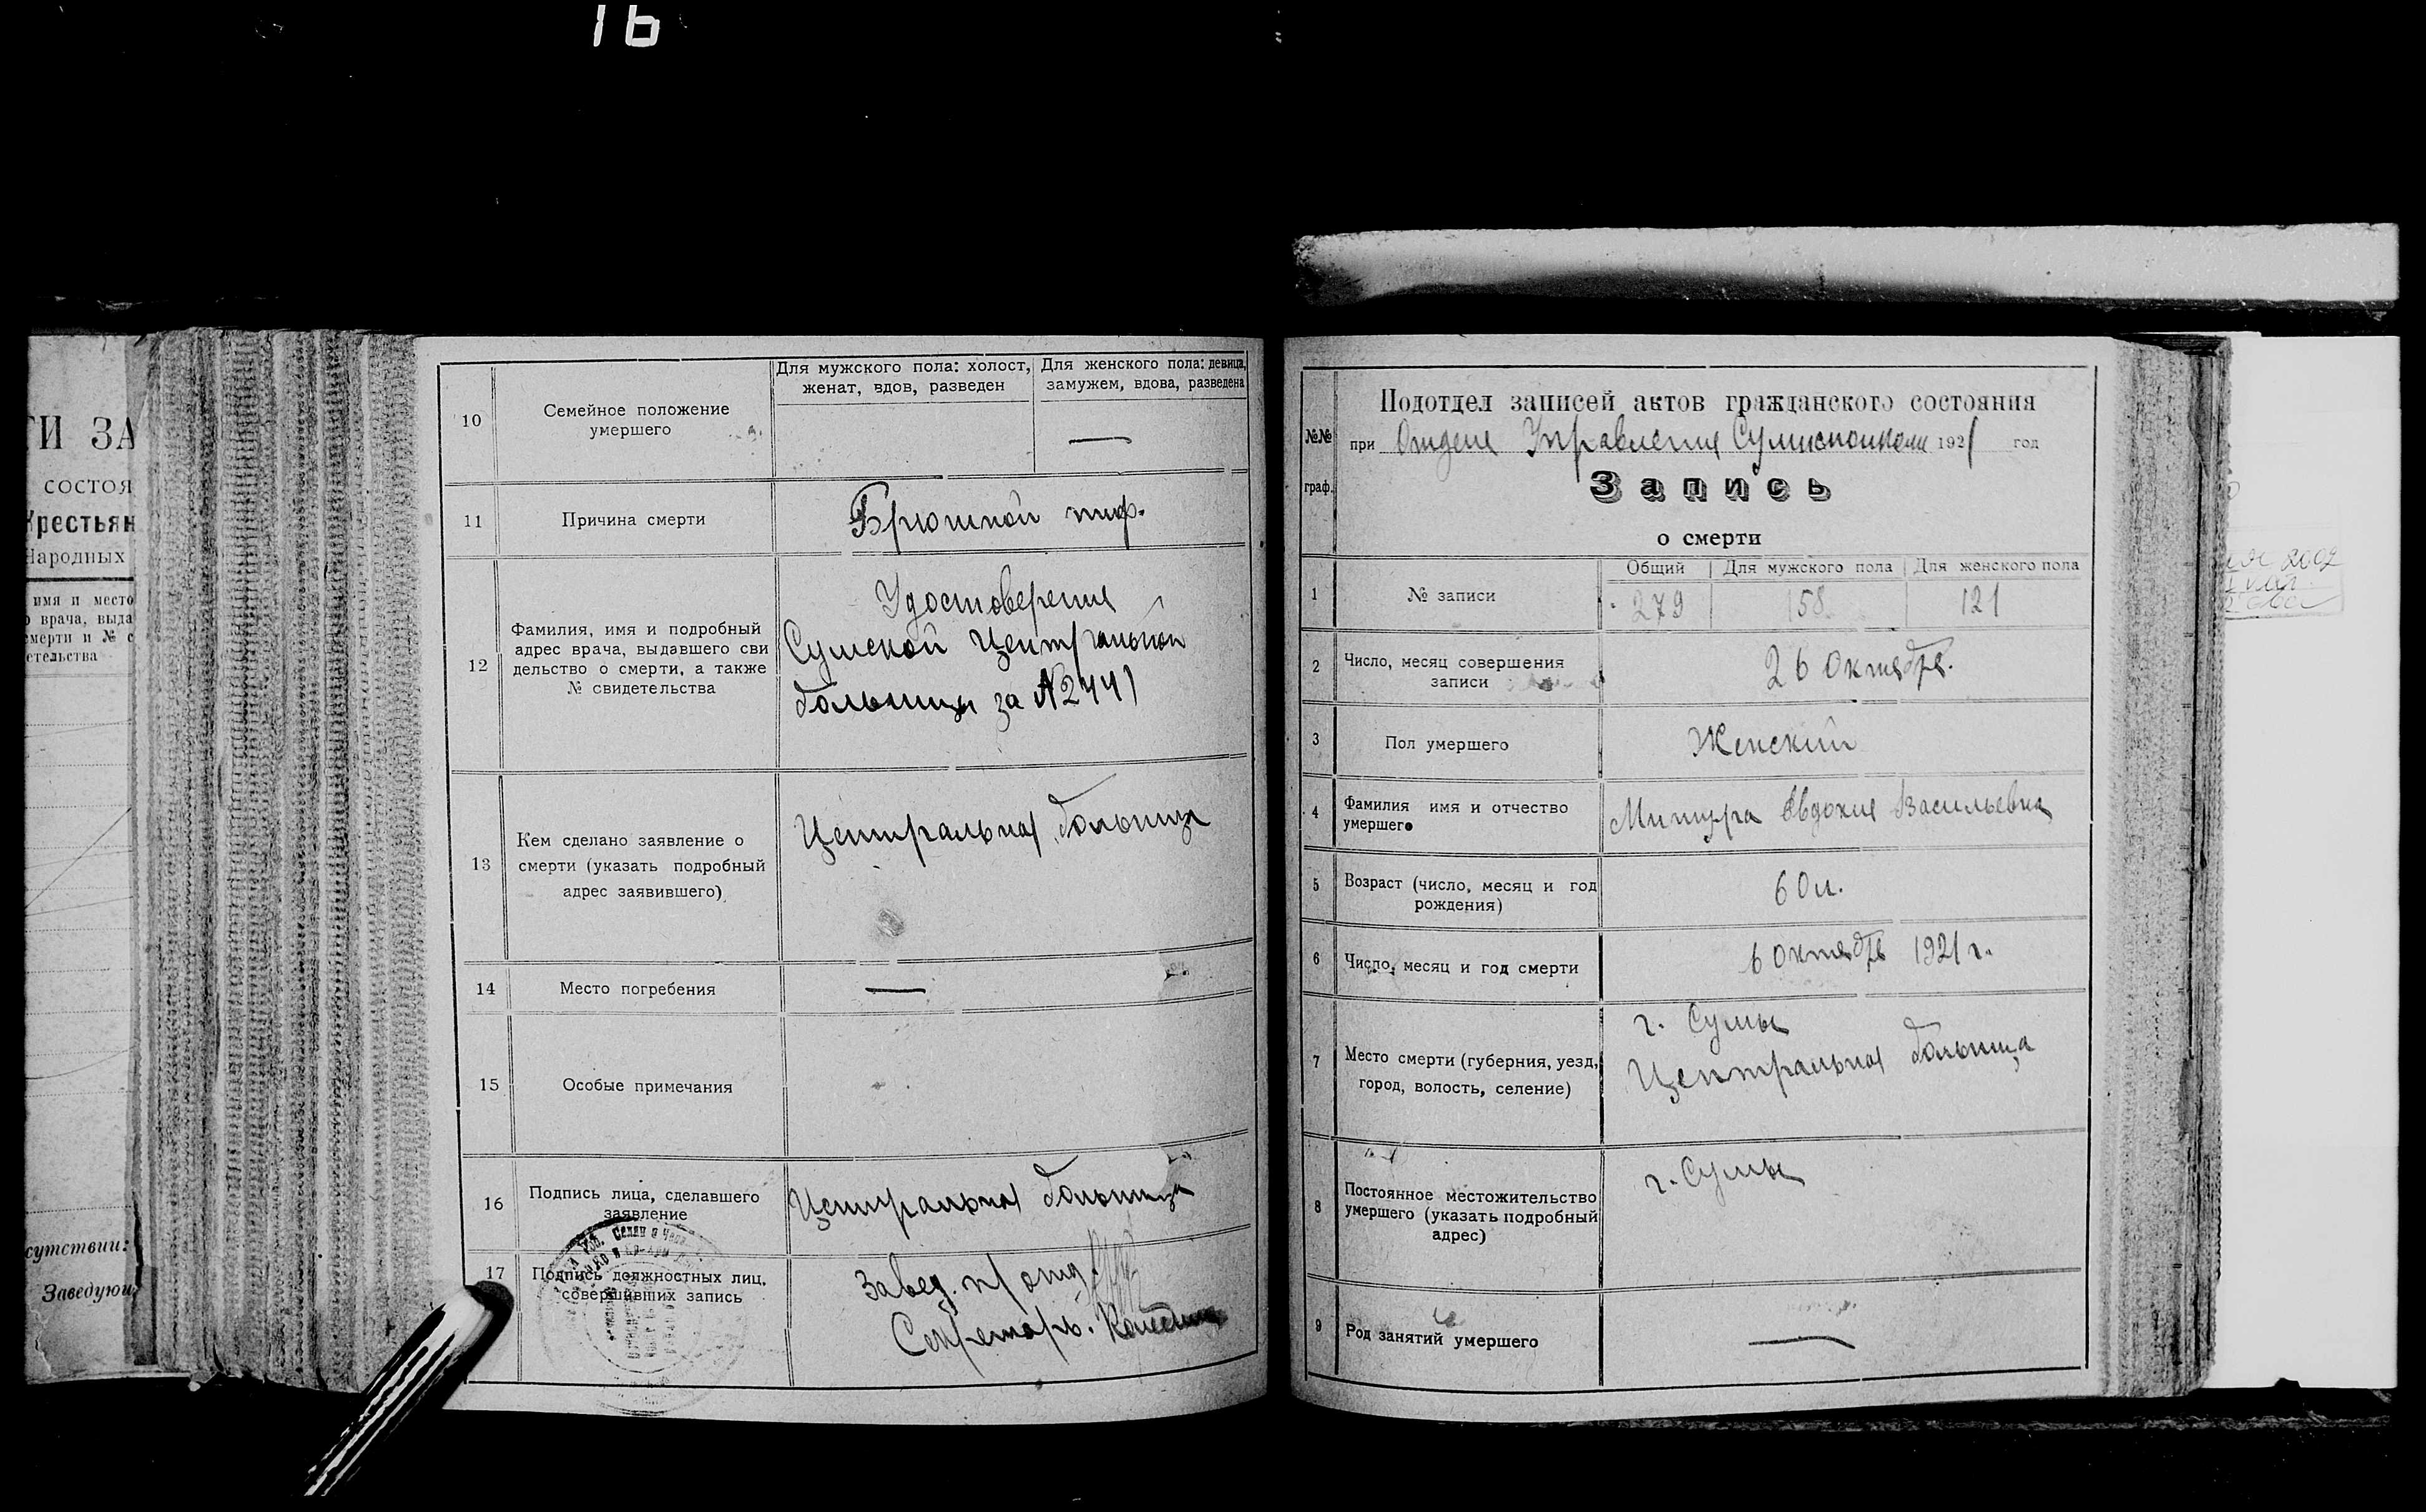 16
ТИ ЗА
СОСТОЯ
Крестьян
Народных
имя и место
о врача, выда
смерти и № с
етельства
сутствии:
Заведующ
10
Семейное положение
умершего
Для мужского пола: холост,
женат, вдов, разведен
Для женского пола: девица,
замужем, вдова, разведена
—
11
Причина смерти
Брюшной тиф.
12
Фамилия, имя и подробный
адрес врача, выдавшего сви
дельство о смерти, а также
№ свидетельства
Удостоверения
Сумской Центральной
больницы за №2441
13
Кем сделано заявление о
смерти (указать подробный
адрес заявившего)
Центральная больница
14
Место погребения
—
15
Особые примечания
16
Подпись лица, сделавшего
заявление
Центральная больница
17
Подпись должностных лиц,
совершивших запись
Завед. п/отд.
Секретарь.
№№
граф.
Подотдел записей актов гражданского состояния
при Отделе Управления 1921 год
Запись
о смерти
1
№ записи
Общий
Для мужского пола
Для женского пола
279
158
121
2
Число, месяц совершения
записи
26 Октября.
3
Пол умершего
Женский
4
Фамилия имя и отчество
умершего
Мицура Евдокия Васильевна
5
Возраст (число, месяц и год
рождения)
60 л.
6
Число, месяц и год смерти
6 Октября 1921 г.
7
Место смерти (губерния, уезд,
город, волость, селение)
г. Сумы
Центральная больница
8
Постоянное местожительство
умершего (указать подробный
адрес)
г. Сумы
9
Род занятий умершего
—